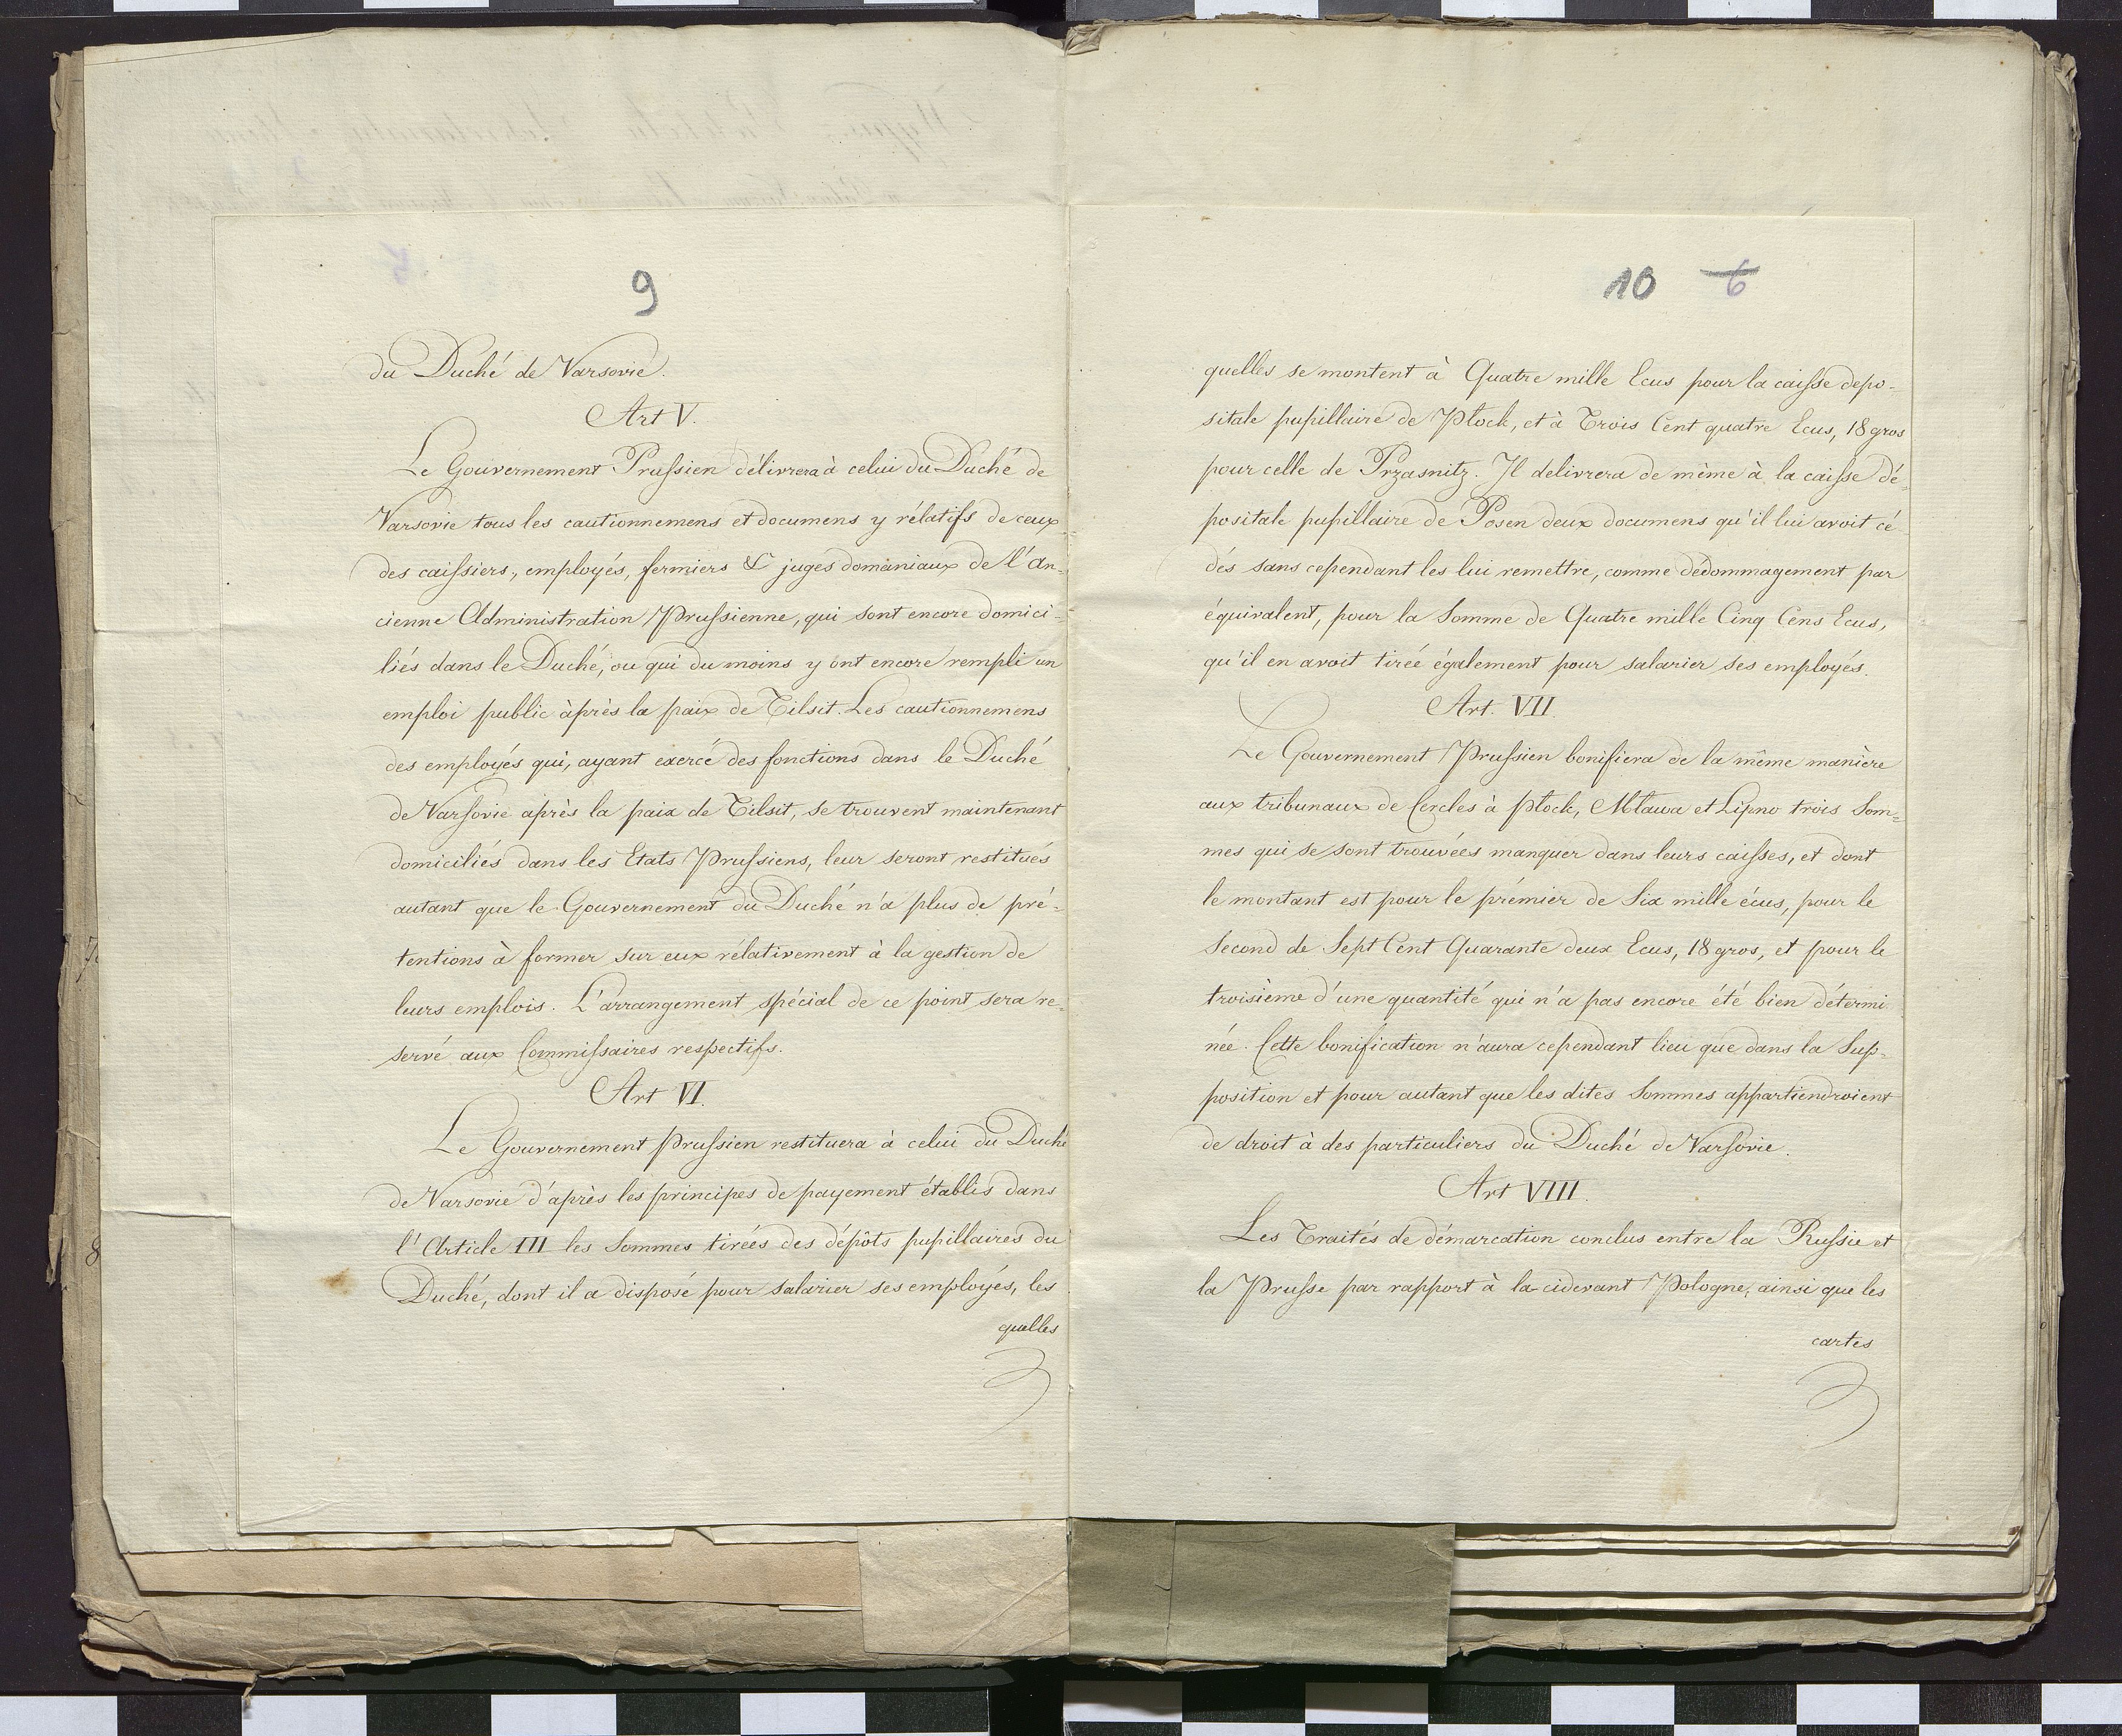 9
du Duché de Varsovie.
Art V.
Le Gouvernement Prussien délivrera à celui du Duché de
Varsovie tous les cautionnemens et documens y rélatifs de ceux
des caissiers, employés, fermiers & juges domaniaux de l'An-
cienne Administration Prussienne, qui sont encore domici-
liés dans le Duché, ou qui du moins y ont encore rempli un
emploi public àprès la paix de Tilsit. Les cautionnemens
des employés qui, ayant exercé des fonctions dans le Duché
de Varsovie après la paix de Tilsit, se trouvent maintenant
domiciliés dans les Etats Prussiens, leur seront restitués
autant que le Gouvernement du Duché n'a plus de pré-
tentions à former sur eux rélativement à la gestion de
leurs emplois. L'arrangement spécial de ce point sera re-
servé aux Commissaires respectifs.
Art VI.
Le Gouvernement Prussien restituera à celui du Duché
de Varsovie d'après les principes de payement établis dans
l'Article III les Sommes tirées des dépôts pupillaires du
Duché, dont il a disposé pour salarier ses employés, les
quelles
10 6
quelles se montent à Quatre mille Ecus pour la caisse depo-
sitale pupillaire de Płock, et à Trois Cent quatre Ecus, 18 gros
pour celle de Przasnitz. Il delivrera de même à la caisse dé-
positale pupillaire de Posen deux documens qu'il lui avoit cé
dés sans cependant les lui remettre, comme dédommagement par
équivalent, pour la Somme de Quatre mille Cinq Cens Ecus,
qu'il en avoit tirée également pour salarier ses employés.
Art. VII.
Le Gouvernement Prussien bonifiera de la même manière
aux tribunaux de Cercles à Płock, Mława et Lipno trois Som-
mes qui se sont trouvées manquer dans leurs caisses, et dont
le montant est pour le prémier de Six mille écus, pour le
Second de Sept Cent Quarante deux Ecus, 18 gros, et pour le
troisième d'une quantité qui n'a pas encore été bien détermi
née. Cette bonification n'aura cependant lieu que dans la Sup-
position et pour autant que les dites Sommes appartiendroient
de droit à des particuliers du Duché de Varsovie.
Art VIII.
Les Traités de démarcation conclus entre la Russie et
la Prusse par rapport à la cidevant Pologne, ainsi que les
cartes